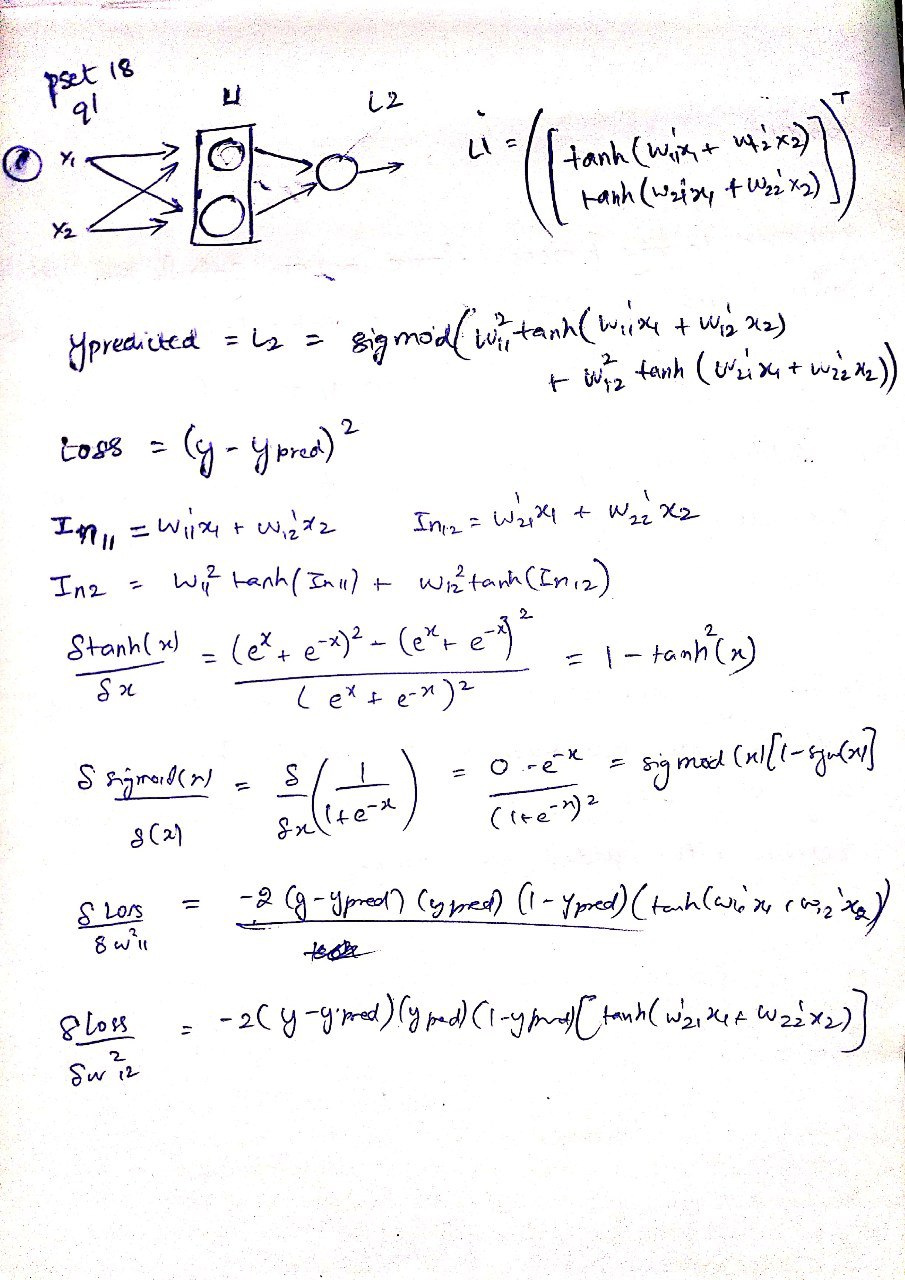 pset 18
q1
L1 L2
x₁
x₂
L1 = ([tanh(w₁₁¹x₁ + w₁₂¹x₂)
tanh(w₂₁¹x₁ + w₂₂¹x₂)])ᵀ
ypredicted = L2 = sigmoid(w₁₁² tanh(w₁₁¹x₁ + w₁₂¹x₂)
+ w₁₂² tanh(w₂₁¹x₁ + w₂₂¹x₂))
Loss = (y - ypred)²
In₁₁ = w₁₁¹x₁ + w₁₂¹x₂ In₁₂ = w₂₁¹x₁ + w₂₂¹x₂
In2 = w₁₁² tanh(In₁₁) + w₁₂² tanh(In₁₂)
δtanh(x)/δx = ((eˣ + e⁻ˣ)² - (eˣ + e⁻ˣ)²)/(eˣ + e⁻ˣ)² = 1 - tanh²(x)
δ sigmoid(x)/δ(x) = δ/δx(1/(1+e⁻ˣ)) = (0 - e⁻ˣ)/(1+e⁻ˣ)² = sigmod(x)[1-sgm(x)]
δ Loss/δw²₁₁ = -2(y-ypred)(ypred)(1-ypred)(tanh(w₁₁¹x₁ + w₁₂¹x₂))
δLoss/δw²₁₂ = -2(y-ypred)(ypred)(1-ypred)[tanh(w₂₁¹x₁ + w₂₂¹x₂)]